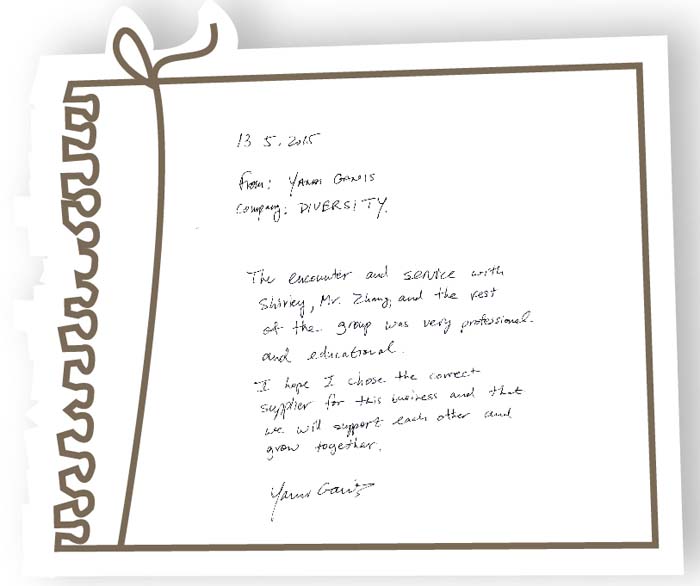 13 5. 2015
From:
Company: DIVERSITY.
The encounter and service with
Shirley, Mr. Zhang, and the rest
of the group was very professional
and educational.
I hope I chose the correct
supplier for this business and that
we will support each other and
grow together.